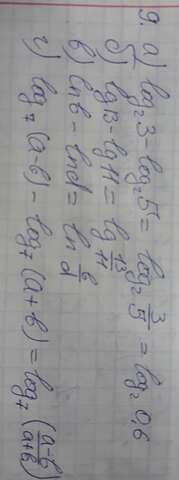 9. а) log₂3 - log₂5 = log₂ 3/5 = log₂ 0,6
б) lg13 - lg11 = lg 13/11
в) lnb - lnd = ln b/d
г) log₇ (a-b) - log₇ (a+b) = log₇ ((a-b)/(a+b))